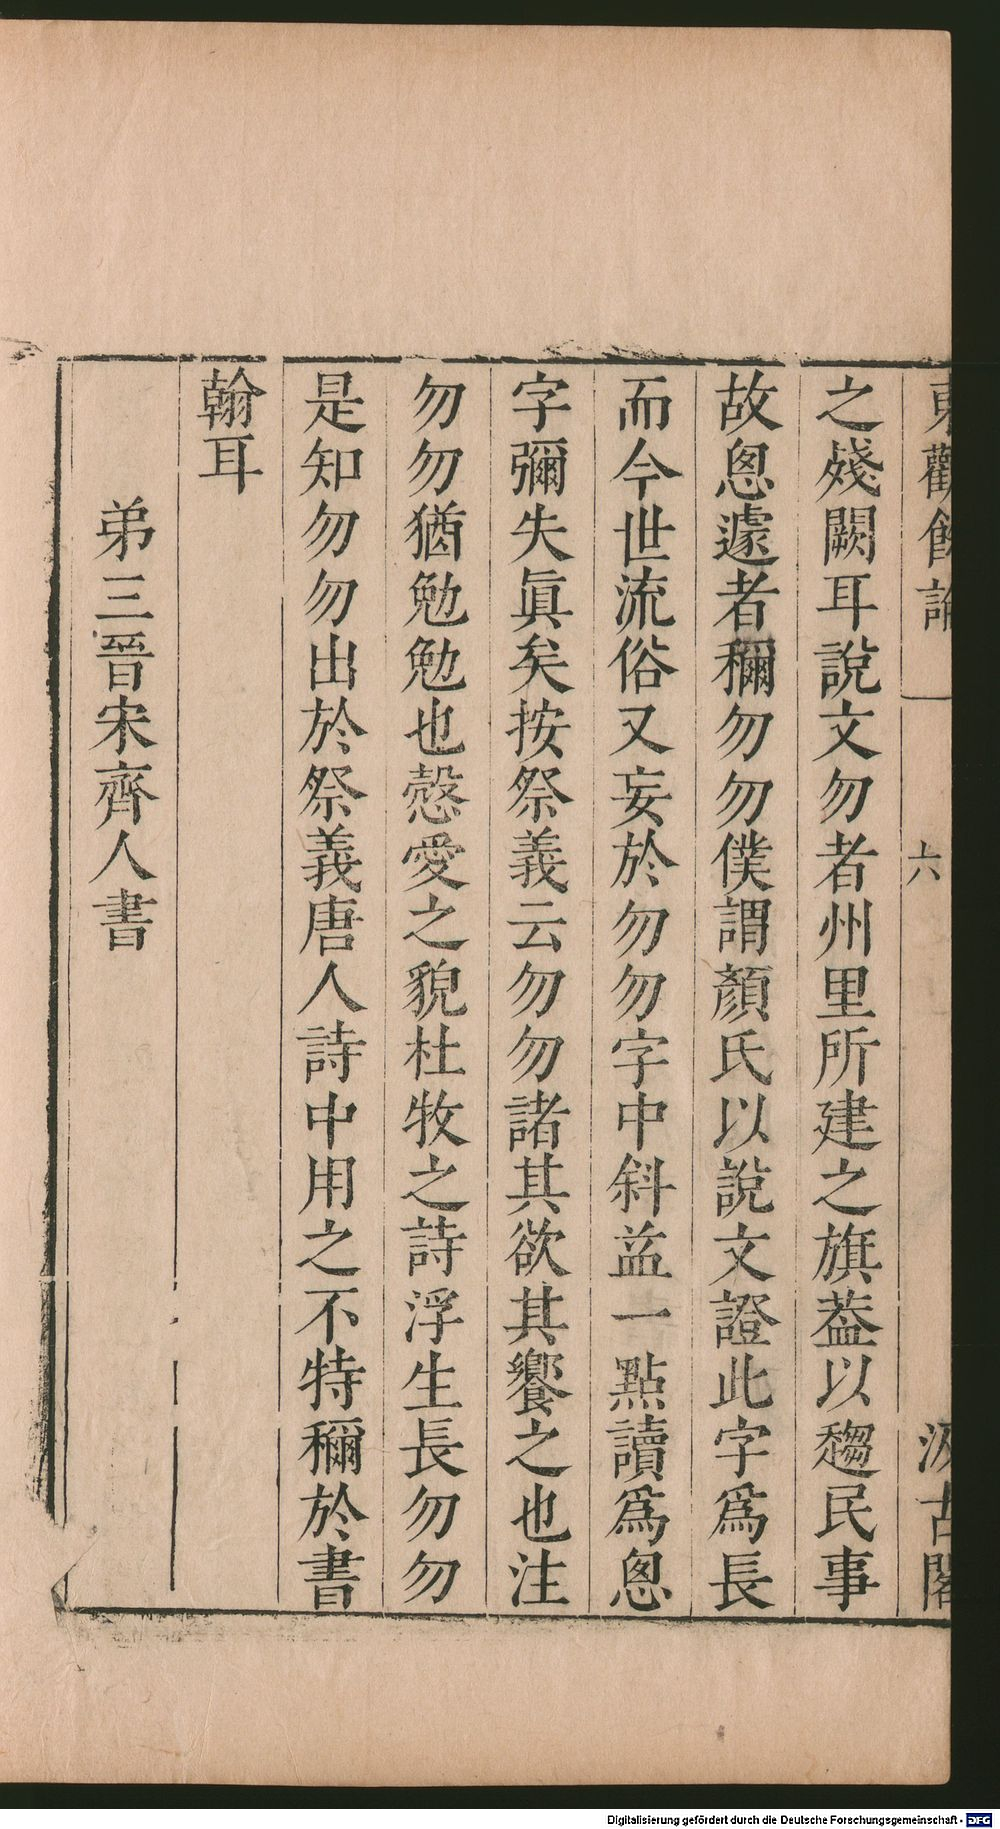 東觀餘論
六
汲古閣
之殘闕耳說文勿者州里所建之旗葢以趨民事
故悤遽者稱勿勿僕謂顏氏以說文證此字爲長
而今世流俗又妄於勿勿字中斜益一點讀爲悤
字彌失眞矣按祭義云勿勿諸其欲其饗之也注
勿勿猶勉勉也慤愛之貌杜牧之詩浮生長勿勿
是知勿勿出於祭義唐人詩中用之不特稱於書
翰耳
弟三晉宋齊人書
Digitalisierung gefördert durch die Deutsche Forschungsgemeinschaft - DFG